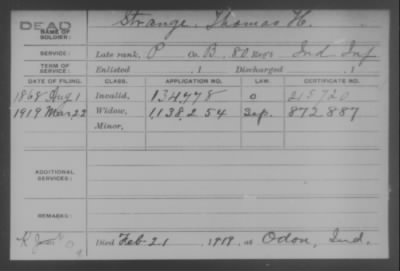 DEAD
NAME OF SOLDIER: Strange, Thomas H.
SERVICE: Late rank, P Co. B, 80 Reg't Ind Inf
TERM OF SERVICE: Enlisted , 1 Discharged , 1
DATE OF FILING. CLASS. APPLICATION NO. LAW. CERTIFICATE NO.
1868 Aug 1 Invalid, 134,778 0 215720
1919 Mar 22 Widow, 1,138,254 872887
Minor,
ADDITIONAL SERVICES:
REMARKS:
Died Feb-21 , 1919, at Odon, Ind.